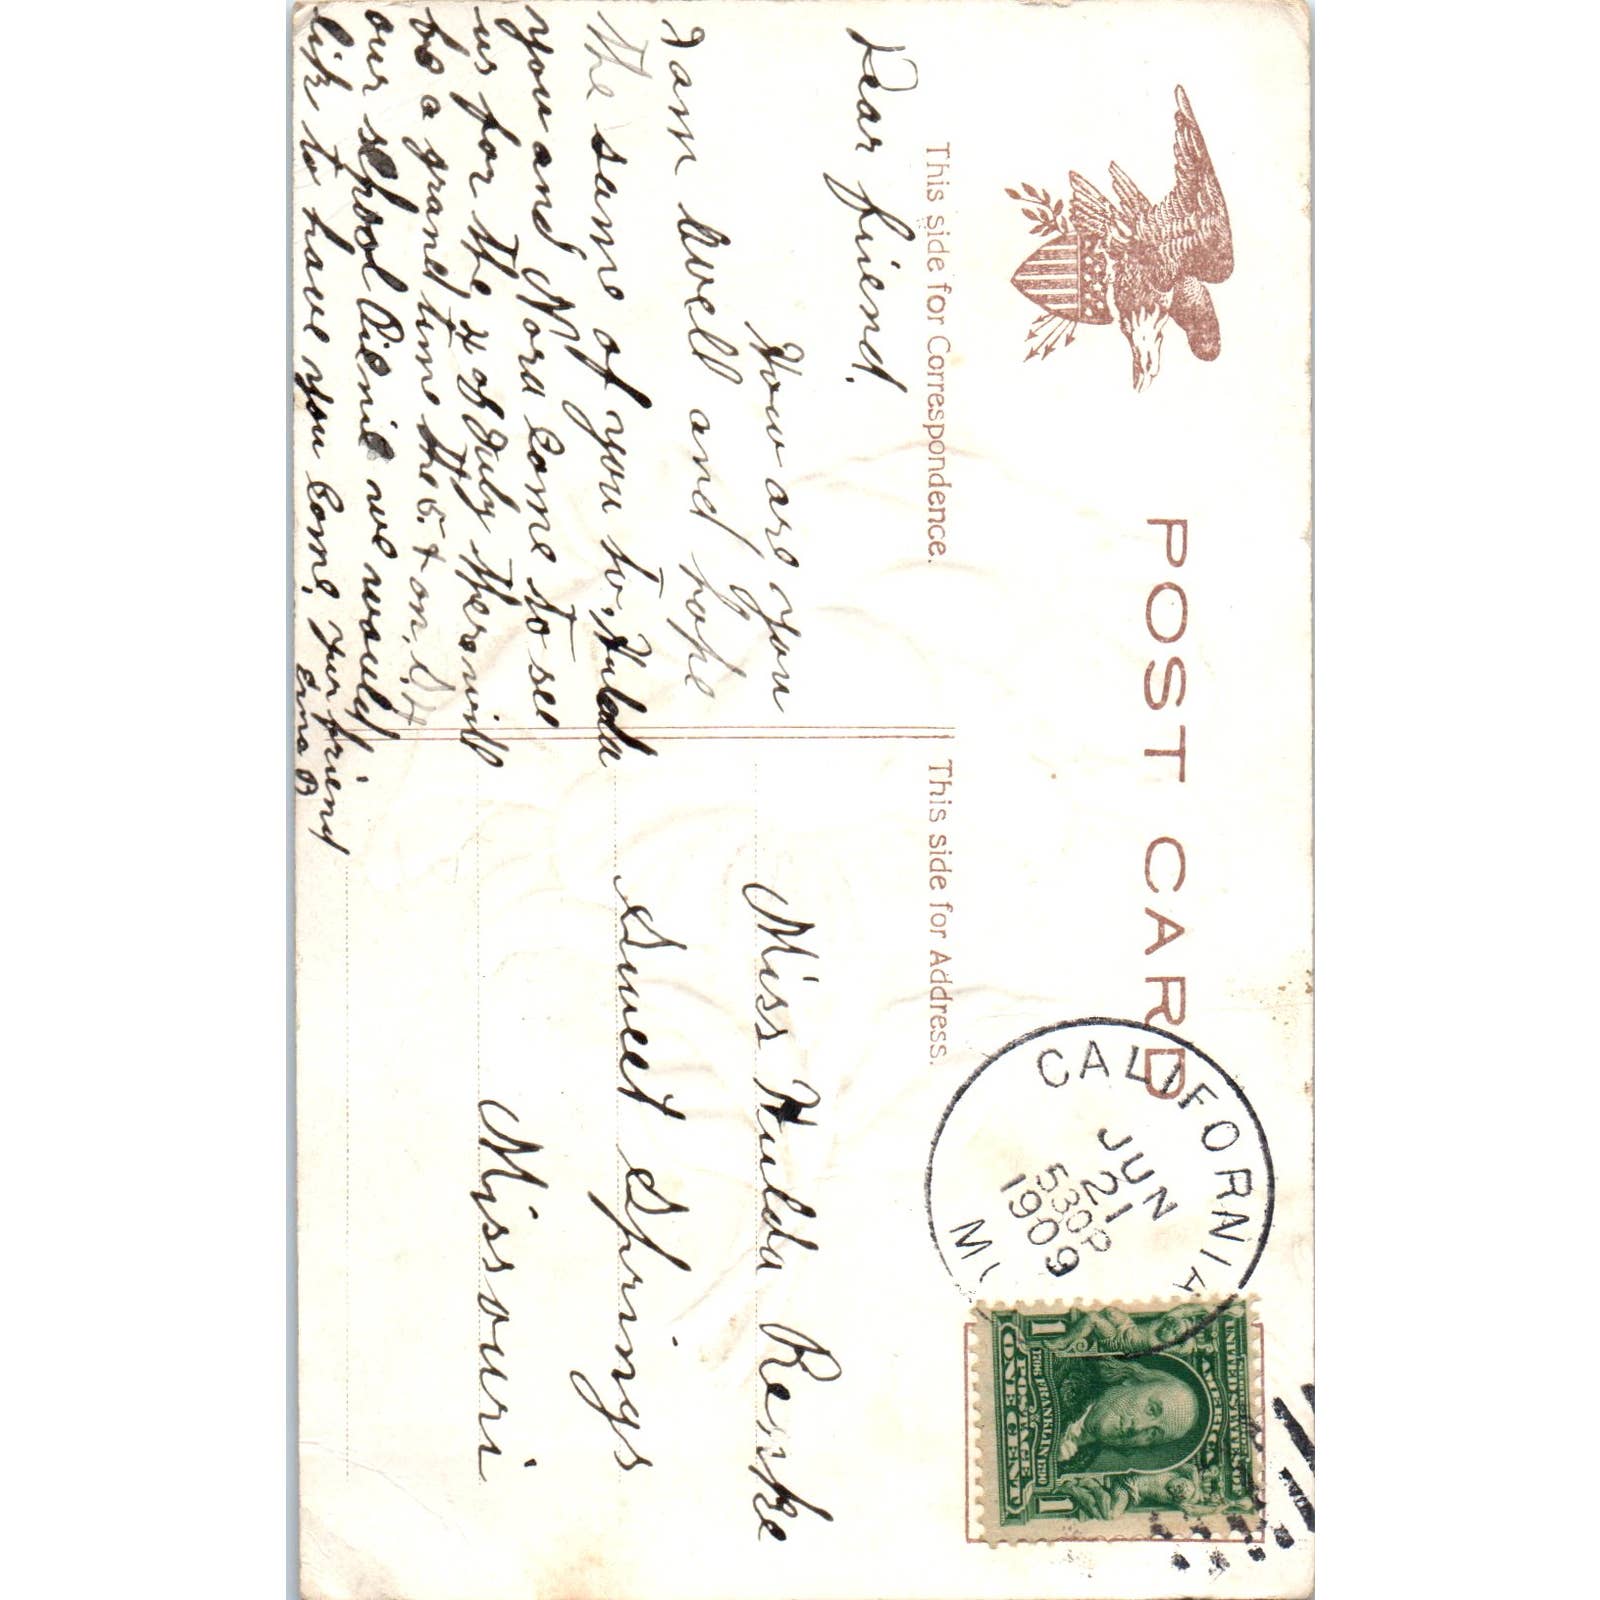 POST CARD
This side for Correspondence.
This side for Address.
Dear friend.
How are you
I am well and hope
the same of you to, Hulda
you and Nora come to see
us for the 4 of July there will
be a grand time the 5.t on,
our school Picnic we would
like to have you come, Fur friend
Erna B
Miss Hulda Renske
Sweet Springs
Missouri
CALIFORNIA
JUN
21
530P
1909
UNITED STATES OF AMERICA
1706 FRANKLIN 1790
POSTAGE
1 ONE CENT 1